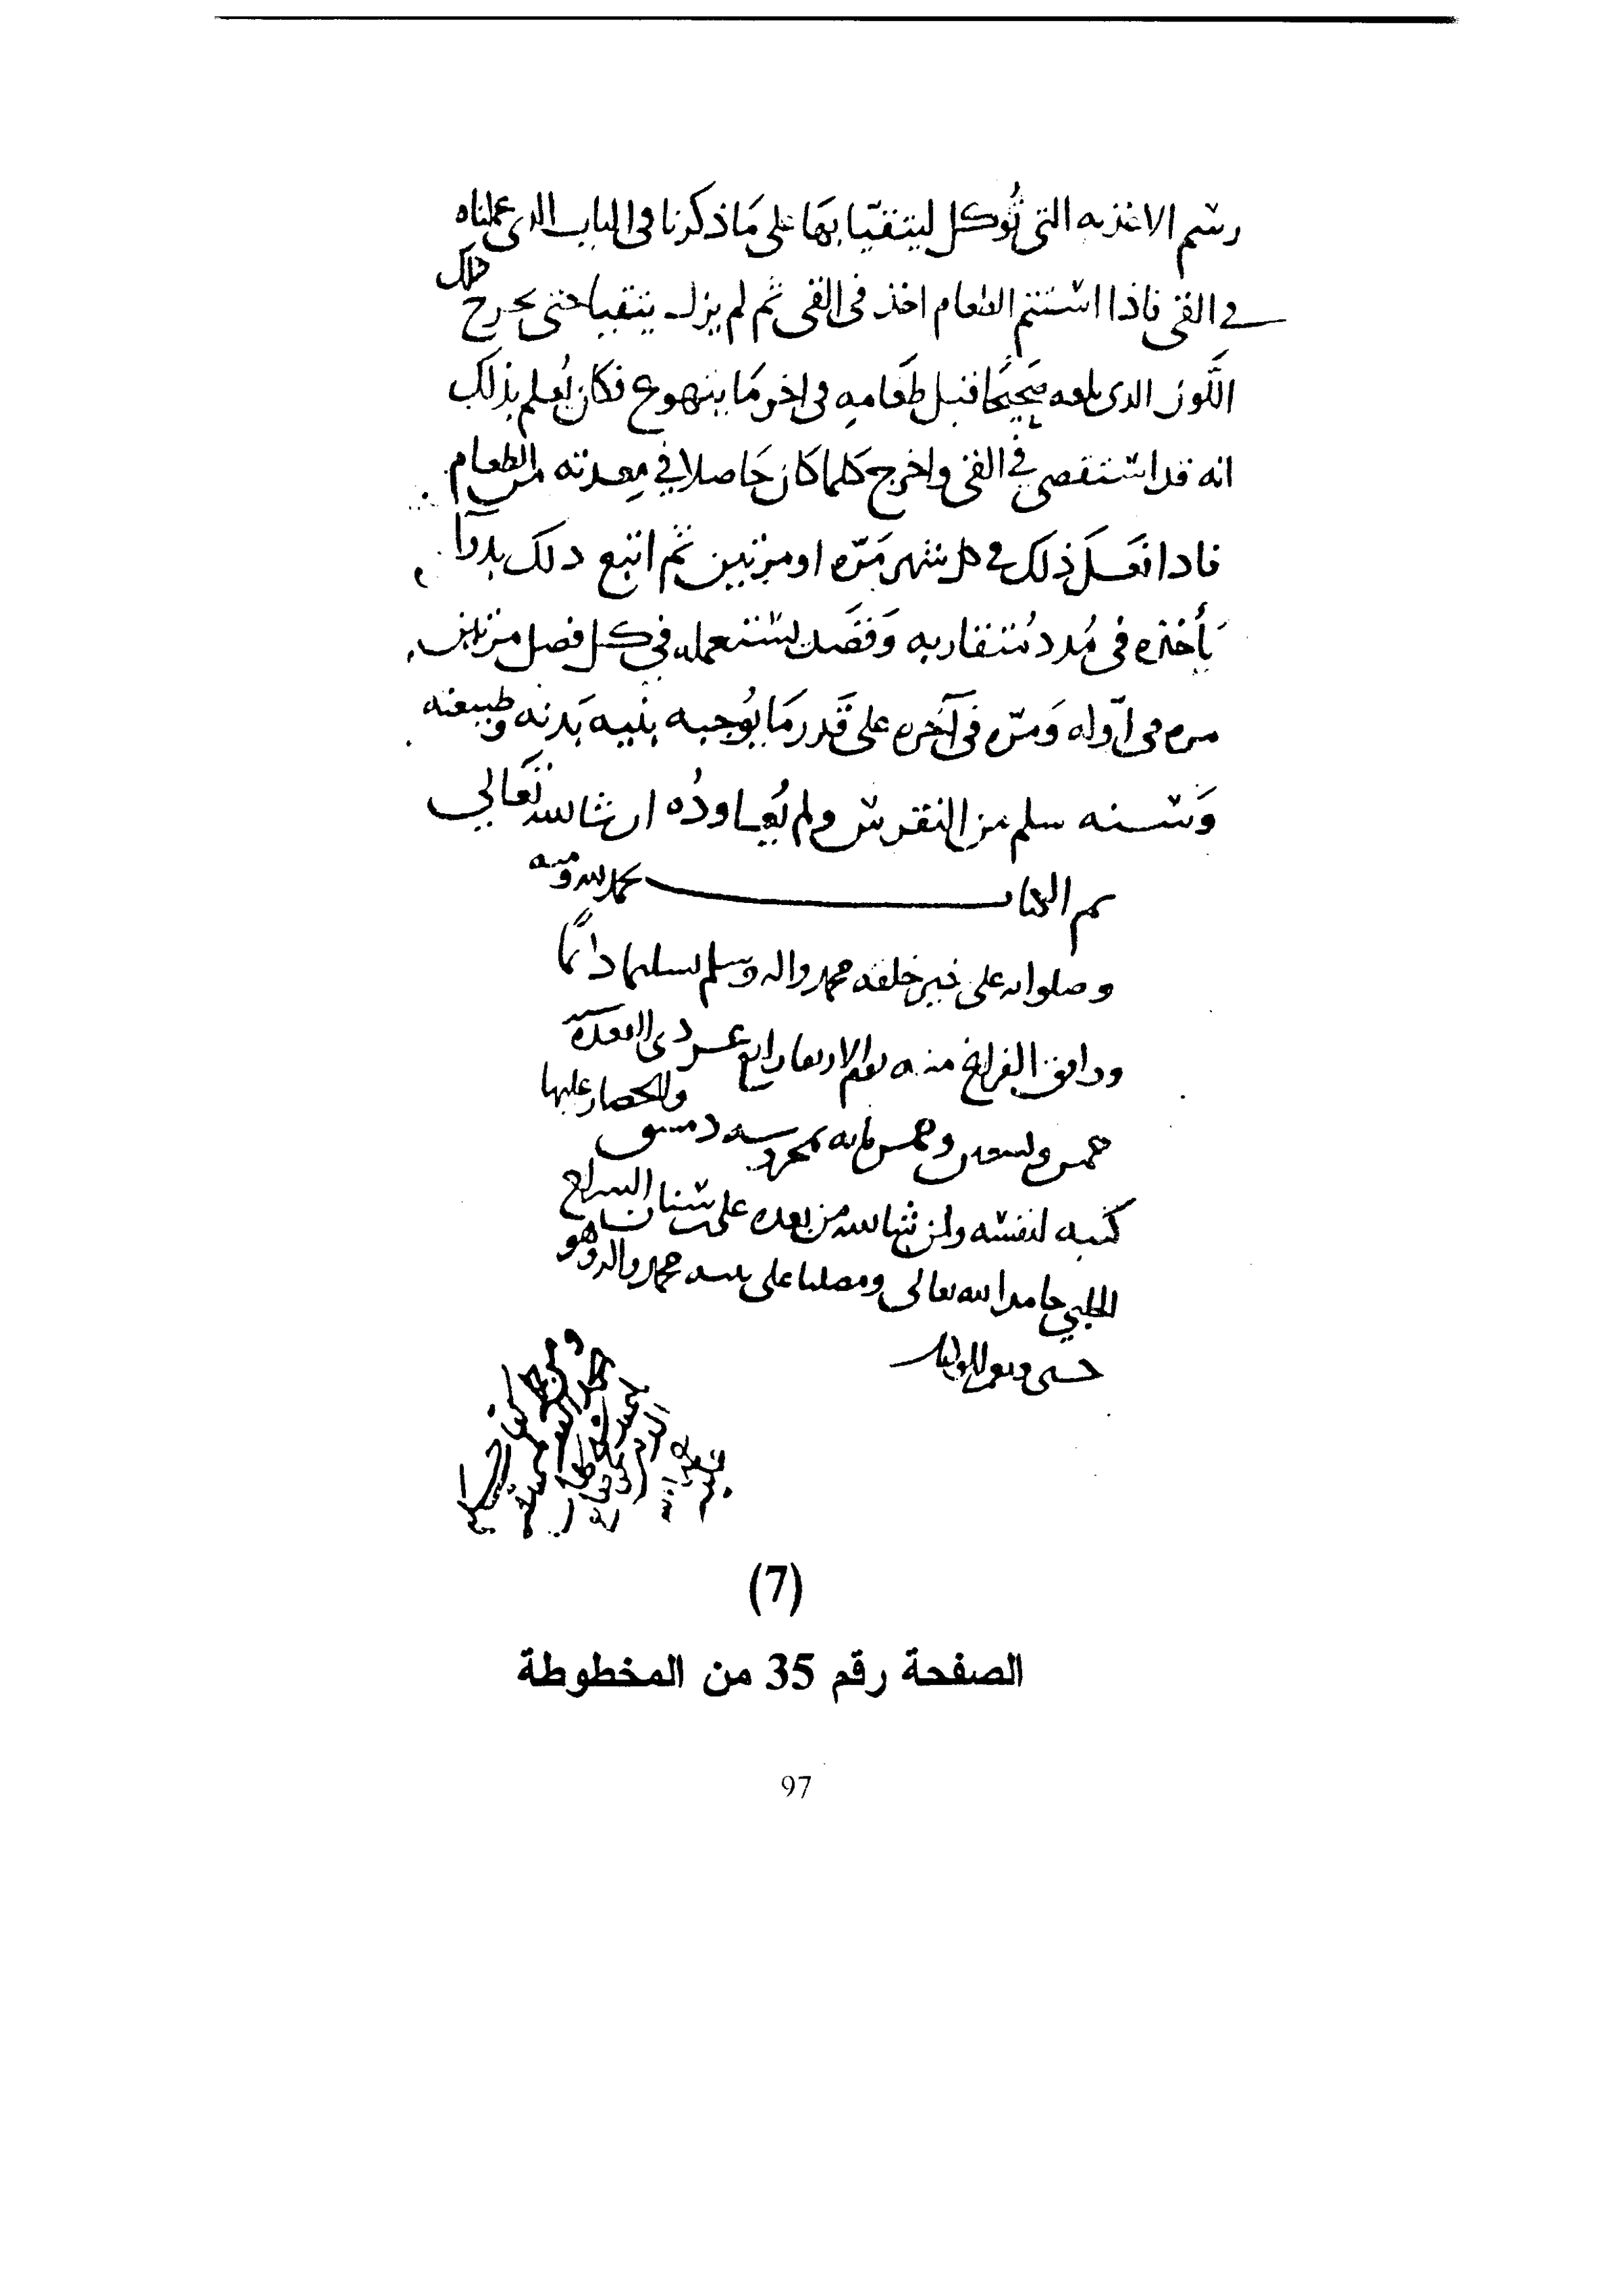 رسم الاغذيه التي تُوكل ليتقيّا بهَا على مَا ذكرنا في الباب الذي عملناه
في القي فاذا استتم الطعام اخذ في القي ثم لم يزل يتقيا حتى يخرج ذلك
اللَّوز الذي بلعه صَحِيحًا قبل طعَامهِ في اخر مَا يتهوع فكان يُعلم بذلك
انه قد استقصى في القي واخرج كلما كان حَاصلا في معدته من الطعام
فاذا فعَل ذلك في كل شهر مَرّه او مرتين ثم اتبع ذلك بدوآ
يأخذه في مُدد مُتقاربه وَفصَد يستعمله في كل فصل مرتين
مره في اوّله وَمَرّه في آخره على قَدر مَا يُوجبه بنيه بَدنه وطبيعته
وَسنه سلم من النقرس ولم يُعاودُه ان شا الله تعَالي
تم الكتاب بحمد الله ومنه
وصلواته على خير خلقه محمد واله وسلم تسليما دائمًا
ووافق الفراغ منه يوم الاربعا رابع عشر ذي القعدة
خمس وتسعين وخمس مايه بمحروسه دمشق والحصار عليها
كتبه لنفسه ولمن شا الله من بعده على
الحلبي حامدا لله تعالى ومصليا على نبيه محمد واله وهو
حسبي ونعم الوكيل
(7)
الصفحة رقم 35 من المخطوطة
97